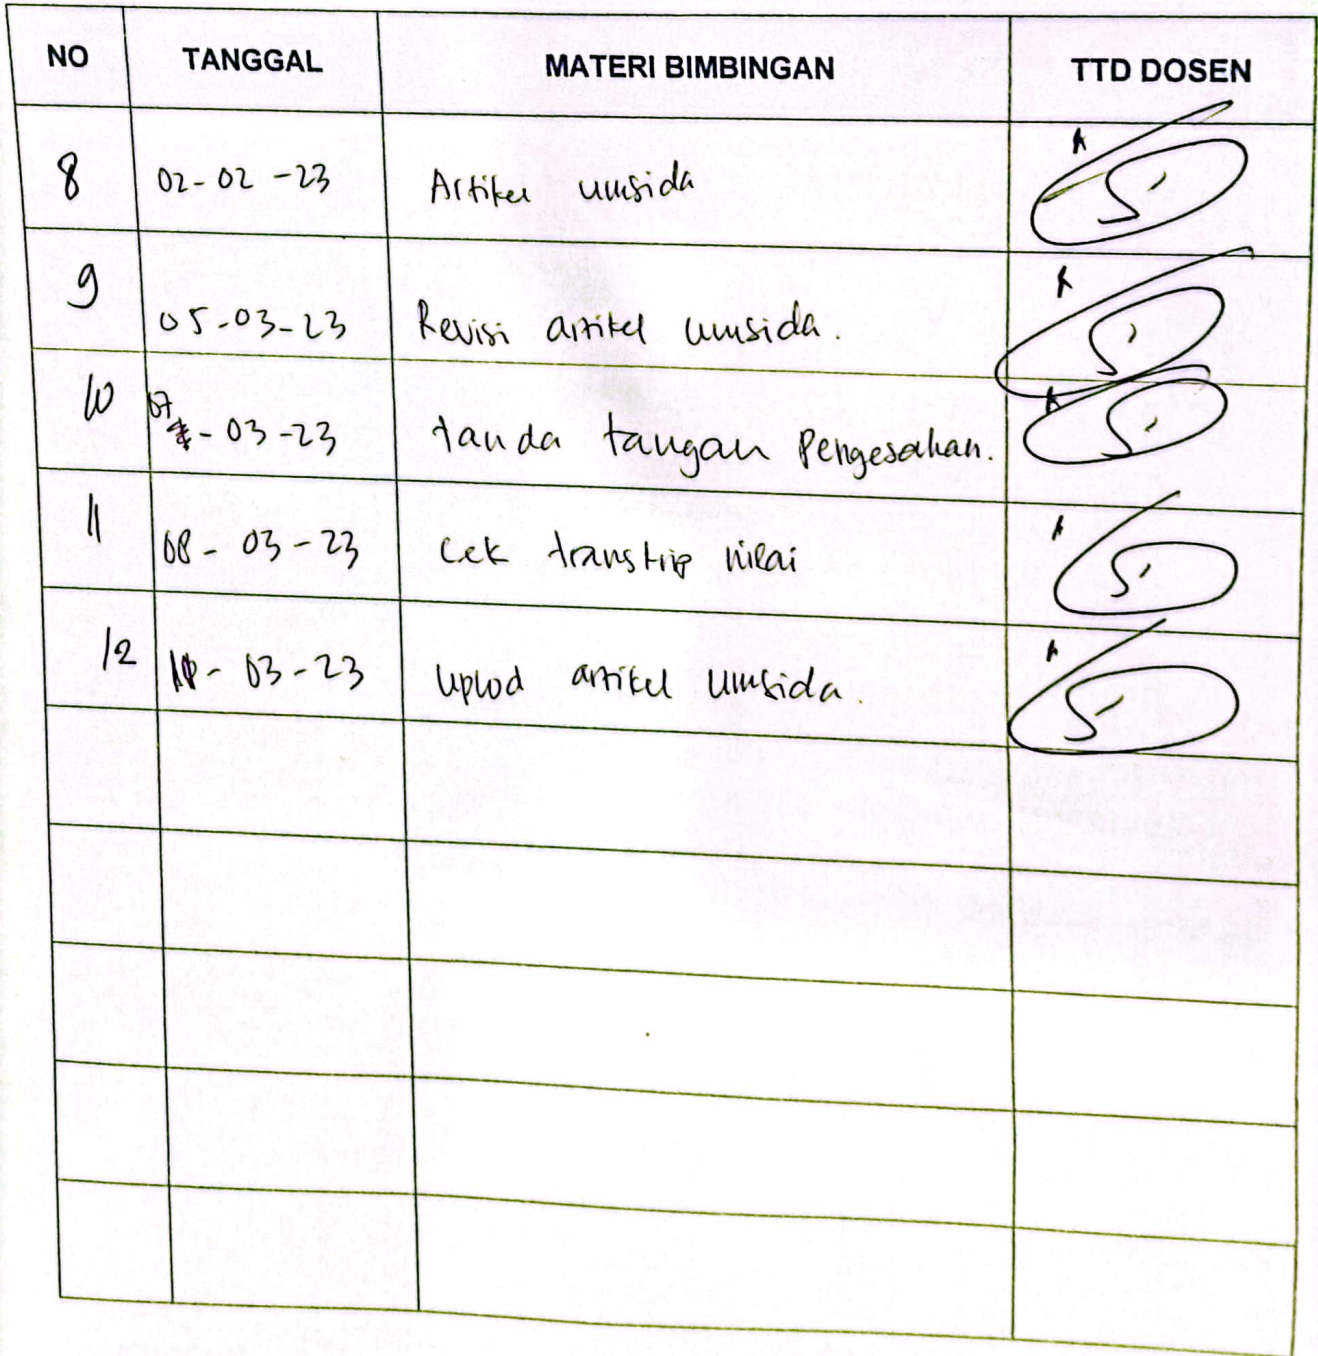 NO TANGGAL MATERI BIMBINGAN TTD DOSEN
8 02-02-23 Artikel umsida
9 05-03-23 Revisi artikel umsida.
10 07-03-23 tanda tangan Pengesahan.
11 08-03-23 cek transkrip nilai
12 -03-23 uplod artikel umsida